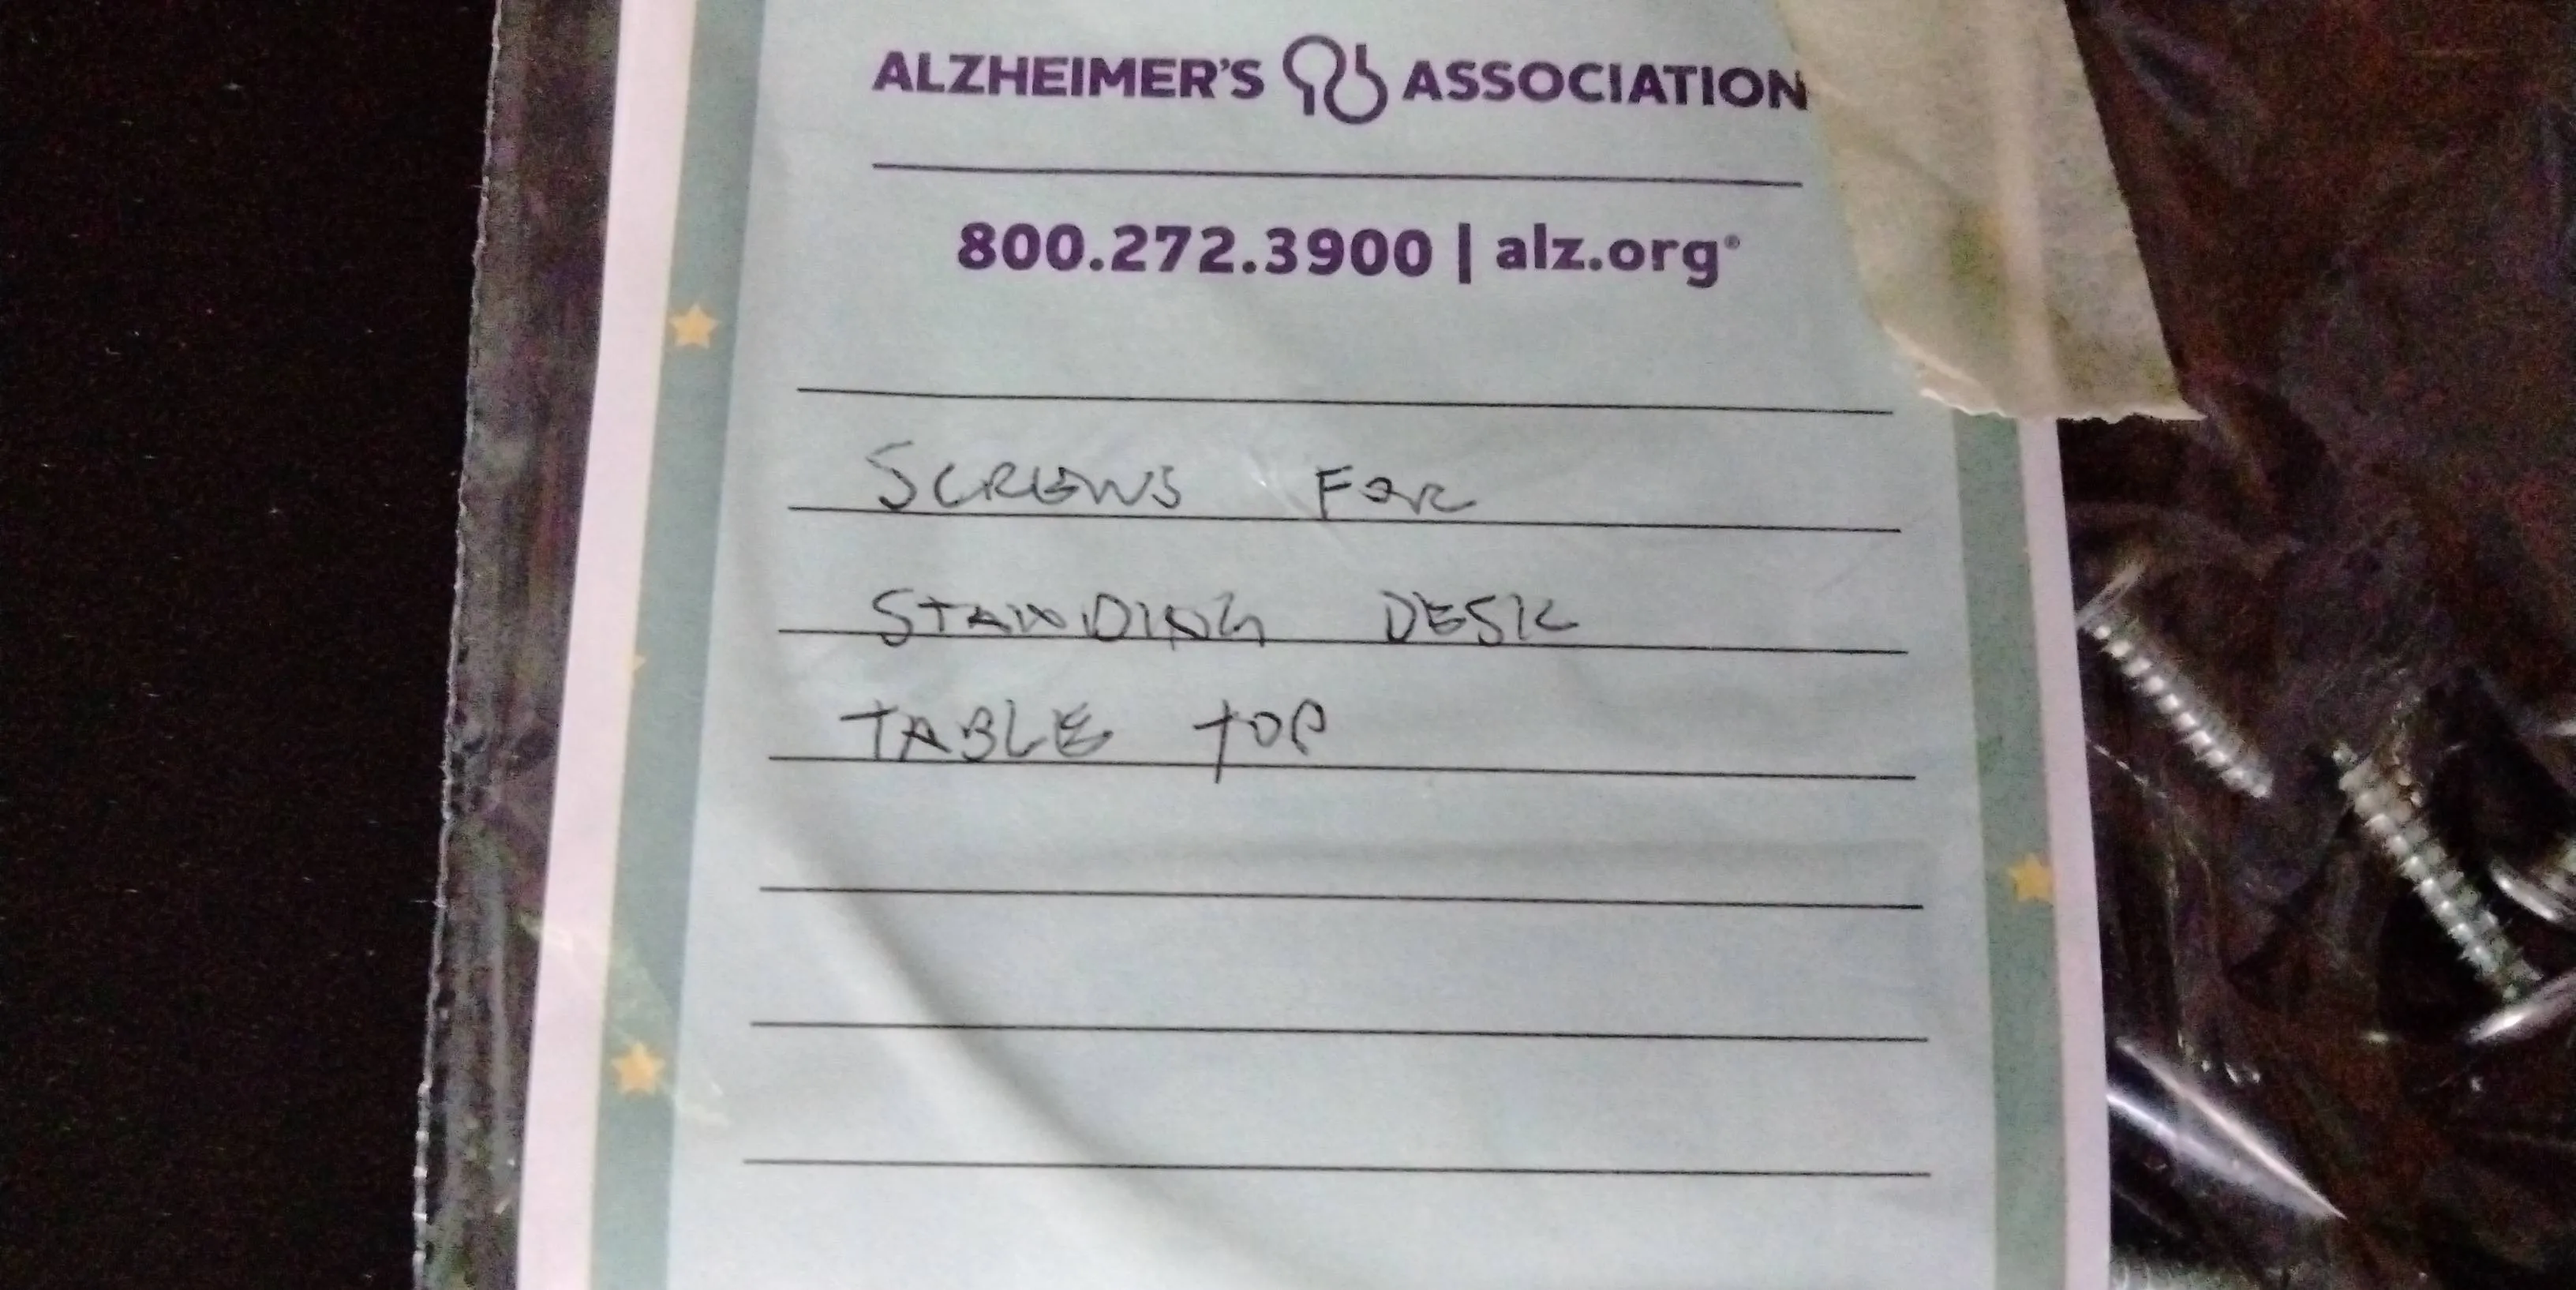 ALZHEIMER'S ASSOCIATION
800.272.3900 | alz.org®
SCREWS FOR
STANDING DESK
TABLE TOP